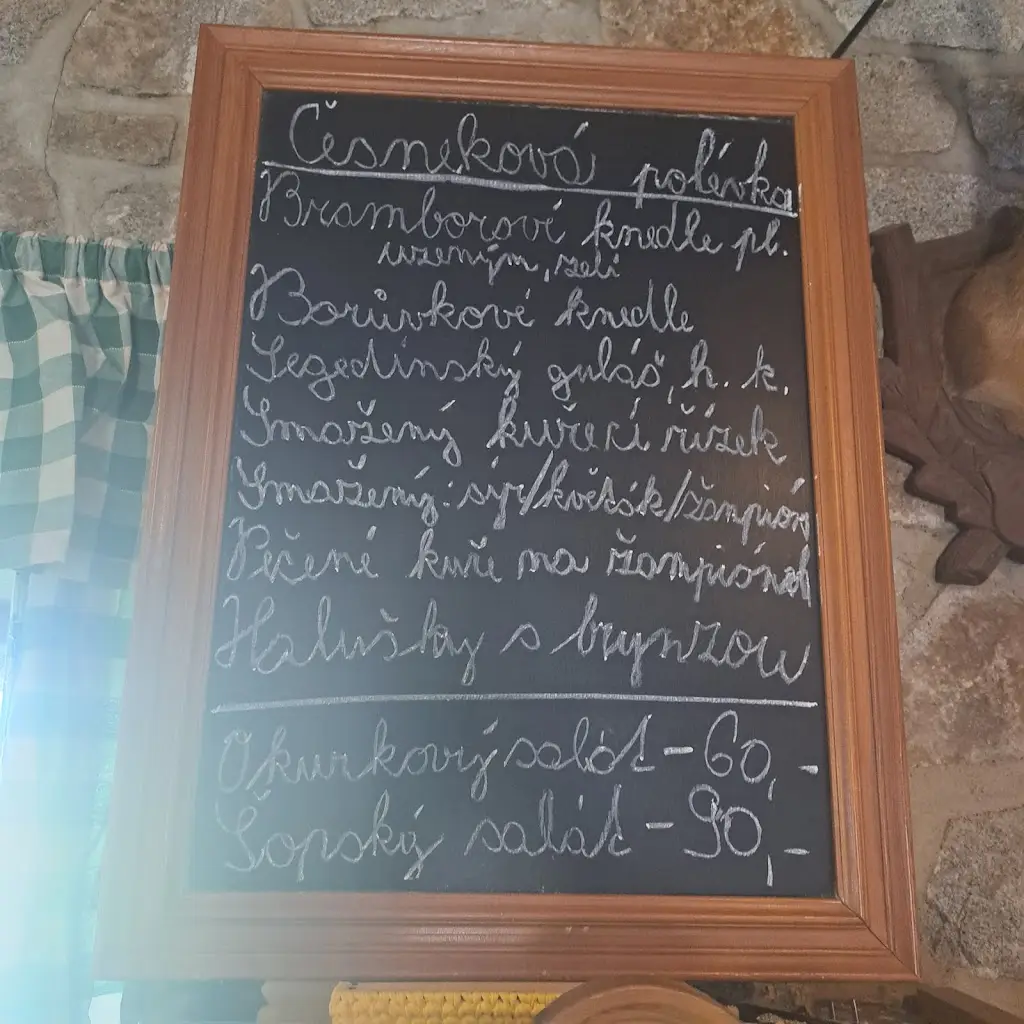 Česneková polévka
Bramborové knedle pl.
uzeným, zelí
Borůvkové knedle
Segedínský guláš, h. k.
Smažený kuřecí řízek
Smažený: sýr/květák/žampióny
Pečené kuře na žampiónech
Halušky s brynzou
Okurkový salát - 60,-
Šopský salát - 90,-